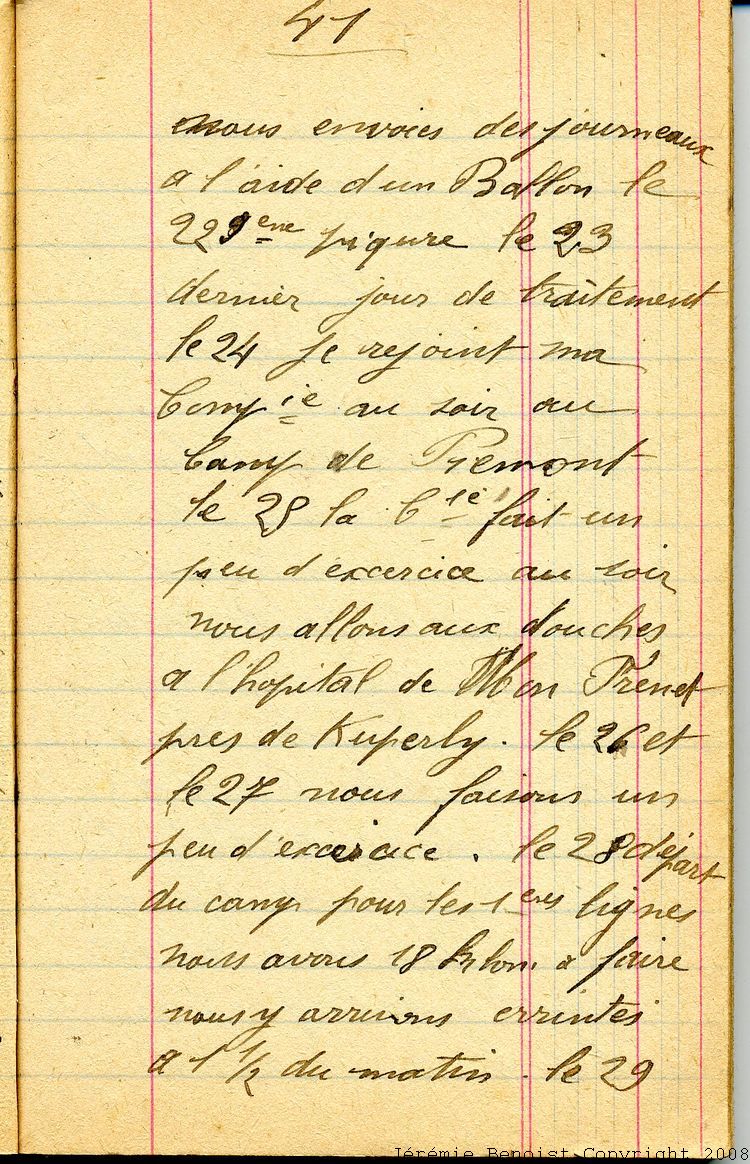 41
nous envoies des journeaux
a l'aide d'un Ballon le
22 9ème piqure le 23
dernier jour de traitement
le 24 je rejoint ma
Compie au soir au
Camp de Piemont
le 25 la Cie fait un
peu d'excercice au soir
nous allons aux douches
a l'hopital de Mon Frénet
pres de Kuperly. le 26 et
le 27 nous faisons un
peu d'excercice. le 28 départ
du camp pour les 1eres lignes
nous avons 18 kilom. a faire
nous y arrivons errintés
a 1 1/2 du matin. le 29
Jérémie Benoist Copyright 2008